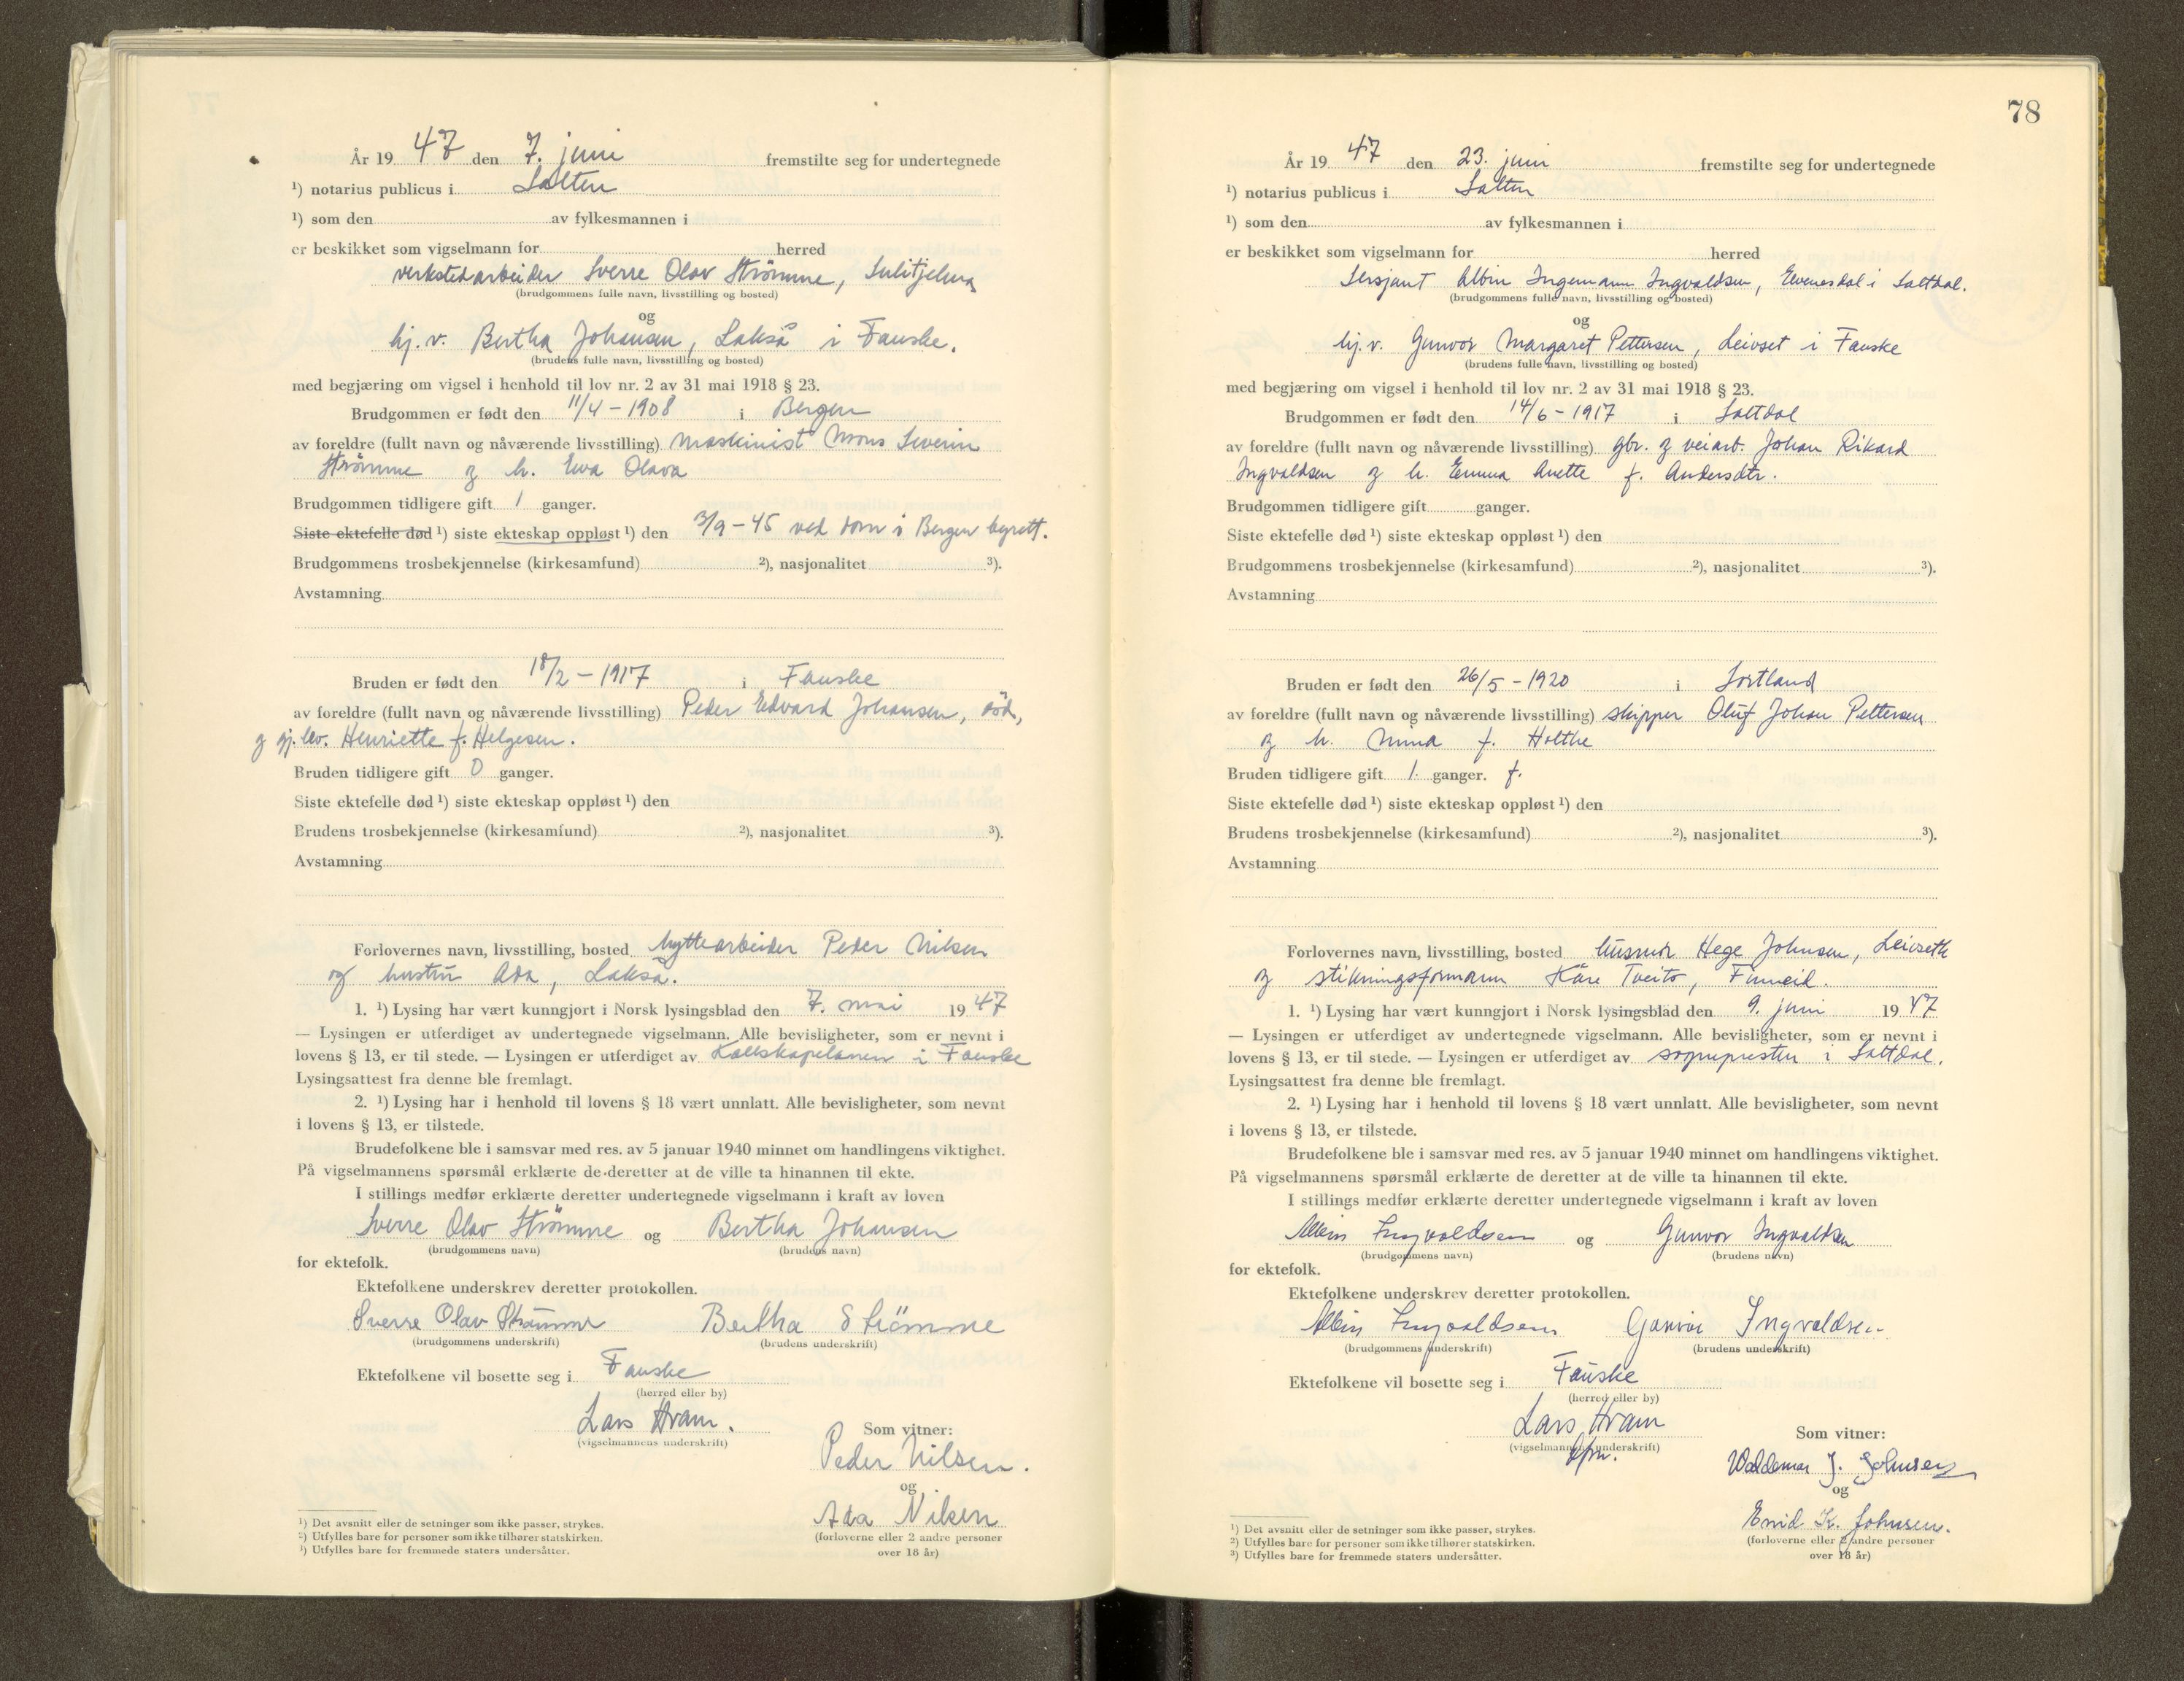 År 19 47 den 7. juni fremstilte seg for undertegnede
¹) notarius publicus i Salten
¹) som den av fylkesmannen i
er beskikket som vigselmann for herred
verkstedarbeider Sverre Olav Strömme, Sulitjelma
(brudgommens fulle navn, livsstilling og bosted)
og
hj. v. Bertha Johansen, Lakså i Fauske.
(brudens fulle navn, livsstilling og bosted)
med begjæring om vigsel i henhold til lov nr. 2 av 31 mai 1918 § 23.
Brudgommen er født den 11/4 - 1908 i Bergen
av foreldre (fullt navn og nåværende livsstilling) maskinist Mons Severin
Strömme og h. Ewa Olava
Brudgommen tidligere gift 1 ganger.
Siste ektefelle død ¹) siste ekteskap oppløst ¹) den 3/9 - 45 ved dom i Bergen byrett.
Brudgommens trosbekjennelse (kirkesamfund) ²), nasjonalitet ³).
Avstamning
Bruden er født den 18/2 - 1917 i Fauske
av foreldre (fullt navn og nåværende livsstilling) Peder Edvard Johansen, död,
og gj. lev. Henriette f. Helgesen.
Bruden tidligere gift 0 ganger.
Siste ektefelle død ¹) siste ekteskap oppløst ¹) den
Brudens trosbekjennelse (kirkesamfund) ²), nasjonalitet ³).
Avstamning
Forlovernes navn, livsstilling, bosted hyttearbeider Peder Nilsen
og hustru Ada, Lakså.
1. ¹) Lysing har vært kunngjort i Norsk lysingsblad den 7. mai 19 47
— Lysingen er utferdiget av undertegnede vigselmann. Alle bevisligheter, som er nevnt i
lovens § 13, er til stede. — Lysingen er utferdiget av Kallskapelanen i Fauske
Lysingsattest fra denne ble fremlagt.
2. ¹) Lysing har i henhold til lovens § 18 vært unnlatt. Alle bevisligheter, som nevnt
i lovens § 13, er tilstede.
Brudefolkene ble i samsvar med res. av 5 januar 1940 minnet om handlingens viktighet.
På vigselmannens spørsmål erklærte de deretter at de ville ta hinannen til ekte.
I stillings medfør erklærte deretter undertegnede vigselmann i kraft av loven
Sverre Olav Strömme og Bertha Johansen
(brudgommens navn) (brudens navn)
for ektefolk.
Ektefolkene underskrev deretter protokollen.
Sverre Olav Strömme Bertha Strömme
(brudgommens underskrift) (brudens underskrift)
Ektefolkene vil bosette seg i Fauske
(herred eller by)
Lars Hram.
(vigselmannens underskrift)
Som vitner:
Peder Nilsen.
og
Ada Nilsen
(forloverne eller 2 andre personer
over 18 år)
¹) Det avsnitt eller de setninger som ikke passer, strykes.
²) Utfylles bare for personer som ikke tilhører statskirken.
³) Utfylles bare for fremmede staters undersåtter.
78
År 19 47 den 23. juni fremstilte seg for undertegnede
¹) notarius publicus i Salten
¹) som den av fylkesmannen i
er beskikket som vigselmann for herred
Sersjant Albin Ingemann Ingvaldsen, Evenesdal i Saltdal.
(brudgommens fulle navn, livsstilling og bosted)
og
hj. v. Gunvor Margaret Pettersen, Leivset i Fauske
(brudens fulle navn, livsstilling og bosted)
med begjæring om vigsel i henhold til lov nr. 2 av 31 mai 1918 § 23.
Brudgommen er født den 14/6 - 1917 i Saltdal
av foreldre (fullt navn og nåværende livsstilling) gbr. og veiarb. Johan Rikard
Ingvaldsen og h. Emma Anette f. Andersdtr.
Brudgommen tidligere gift ganger.
Siste ektefelle død ¹) siste ekteskap oppløst ¹) den
Brudgommens trosbekjennelse (kirkesamfund) ²), nasjonalitet ³).
Avstamning
Bruden er født den 26/5 - 1920 i Sortland
av foreldre (fullt navn og nåværende livsstilling) skipper Oluf Johan Pettersen
og h. Mina f. Holthe
Bruden tidligere gift 1. ganger. f.
Siste ektefelle død ¹) siste ekteskap oppløst ¹) den
Brudens trosbekjennelse (kirkesamfund) ²), nasjonalitet ³).
Avstamning
Forlovernes navn, livsstilling, bosted Husmor Hege Johnsen, Leivseth
og stikningsformann Kåre Tveito, Finneid.
1. ¹) Lysing har vært kunngjort i Norsk lysingsblad den 9. juni 19 47
— Lysingen er utferdiget av undertegnede vigselmann. Alle bevisligheter, som er nevnt i
lovens § 13, er til stede. — Lysingen er utferdiget av sognepresten i Saltdal.
Lysingsattest fra denne ble fremlagt.
2. ¹) Lysing har i henhold til lovens § 18 vært unnlatt. Alle bevisligheter, som nevnt
i lovens § 13, er tilstede.
Brudefolkene ble i samsvar med res. av 5 januar 1940 minnet om handlingens viktighet.
På vigselmannens spørsmål erklærte de deretter at de ville ta hinannen til ekte.
I stillings medfør erklærte deretter undertegnede vigselmann i kraft av loven
Albin Ingvaldsen og Gunvor Ingvaldsen
(brudgommens navn) (brudens navn)
for ektefolk.
Ektefolkene underskrev deretter protokollen.
Albin Ingvaldsen Gunvor Ingvaldsen
(brudgommens underskrift) (brudens underskrift)
Ektefolkene vil bosette seg i Fauske
(herred eller by)
Lars Hram
(vigselmannens underskrift)
Som vitner:
Waldemar J. Johnsen
og
Enid K. Johnsen.
(forloverne eller 2 andre personer
over 18 år)
¹) Det avsnitt eller de setninger som ikke passer, strykes.
²) Utfylles bare for personer som ikke tilhører statskirken.
³) Utfylles bare for fremmede staters undersåtter.